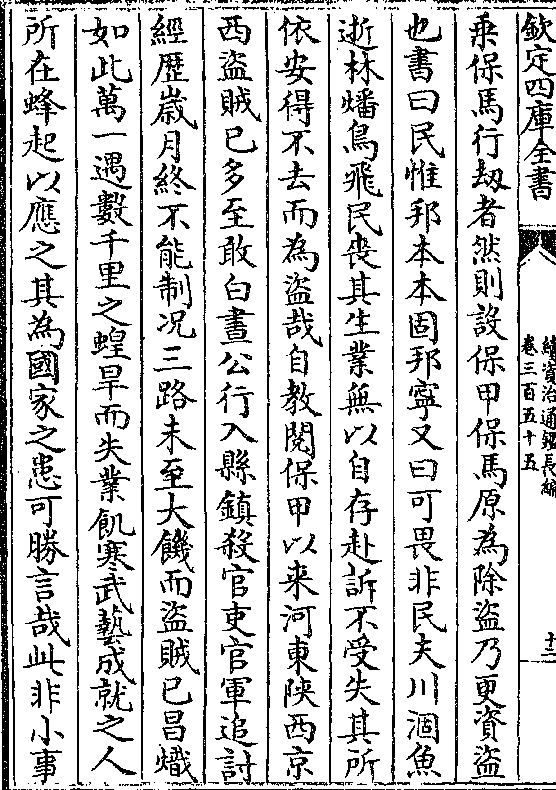 欽定四庫全書
續資治通鑑長編
卷三百五十五
十二
乘保馬行刼者然則設保甲保馬原為除盜乃更資盜
也書曰民惟邦本本固邦寧又曰可畏非民夫川涸魚
逝林燔鳥飛民喪其生業無以自存赴訴不受失其所
依安得不去而為盜哉自教閲保甲以来河東陜西京
西盜賊已多至敢白晝公行入縣鎮殺官吏官軍追討
經歴嵗月終不能制况三路未至大饑而盜賊已昌熾
如此萬一遇數千里之蝗旱而失業飢寒武藝成就之人
所在蜂起以應之其為國家之患可勝言哉此非小事